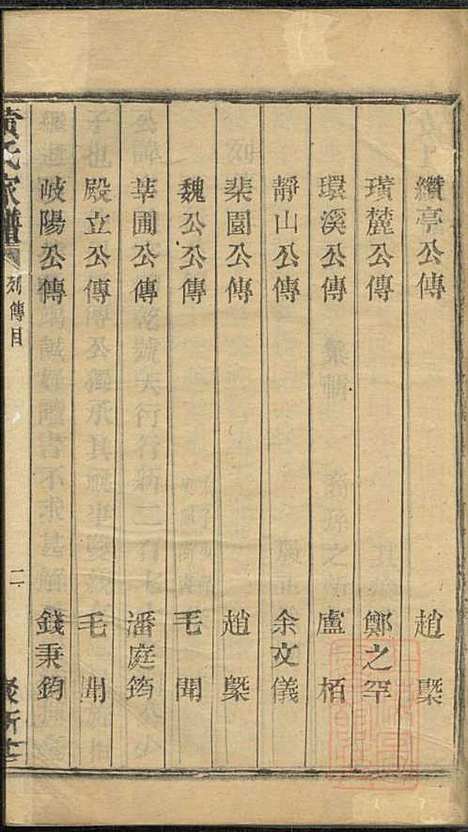 纘亭公傳 趙㮣
璜麓公傳 鄭之罕
環溪公傳 盧栢
靜山公傳 余文儀
棐園公傳 趙㮣
魏公公傳 毛聞
莘圃公傳 潘庭筠
殿立公傳 毛聞
岐陽公傳 錢秉鈞
黃氏家譜 列傳目 二